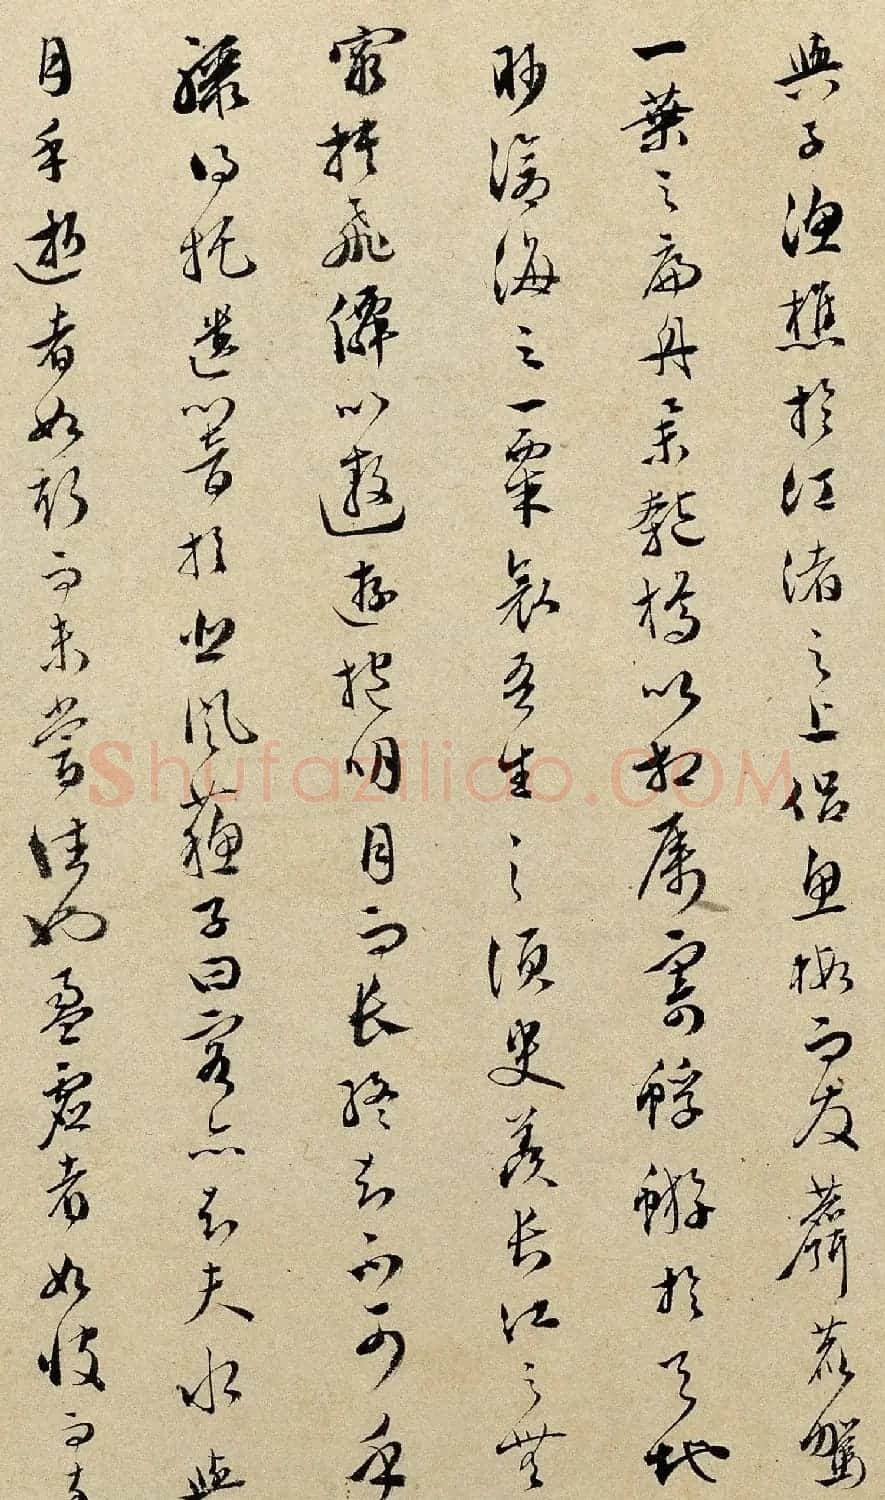 與子漁樵於江渚之上侶魚蝦而友麋鹿駕
一葉之扁舟舉匏樽以相屬寄蜉蝣於天地
眇滄海之一粟哀吾生之須臾羨長江之無
窮挾飛僊以遨遊抱明月而長終知不可乎
驟得托遺響於悲風蘇子曰客亦知夫水與
月乎逝者如斯而未嘗往也盈虛者如彼而
Shufaziliao.COM